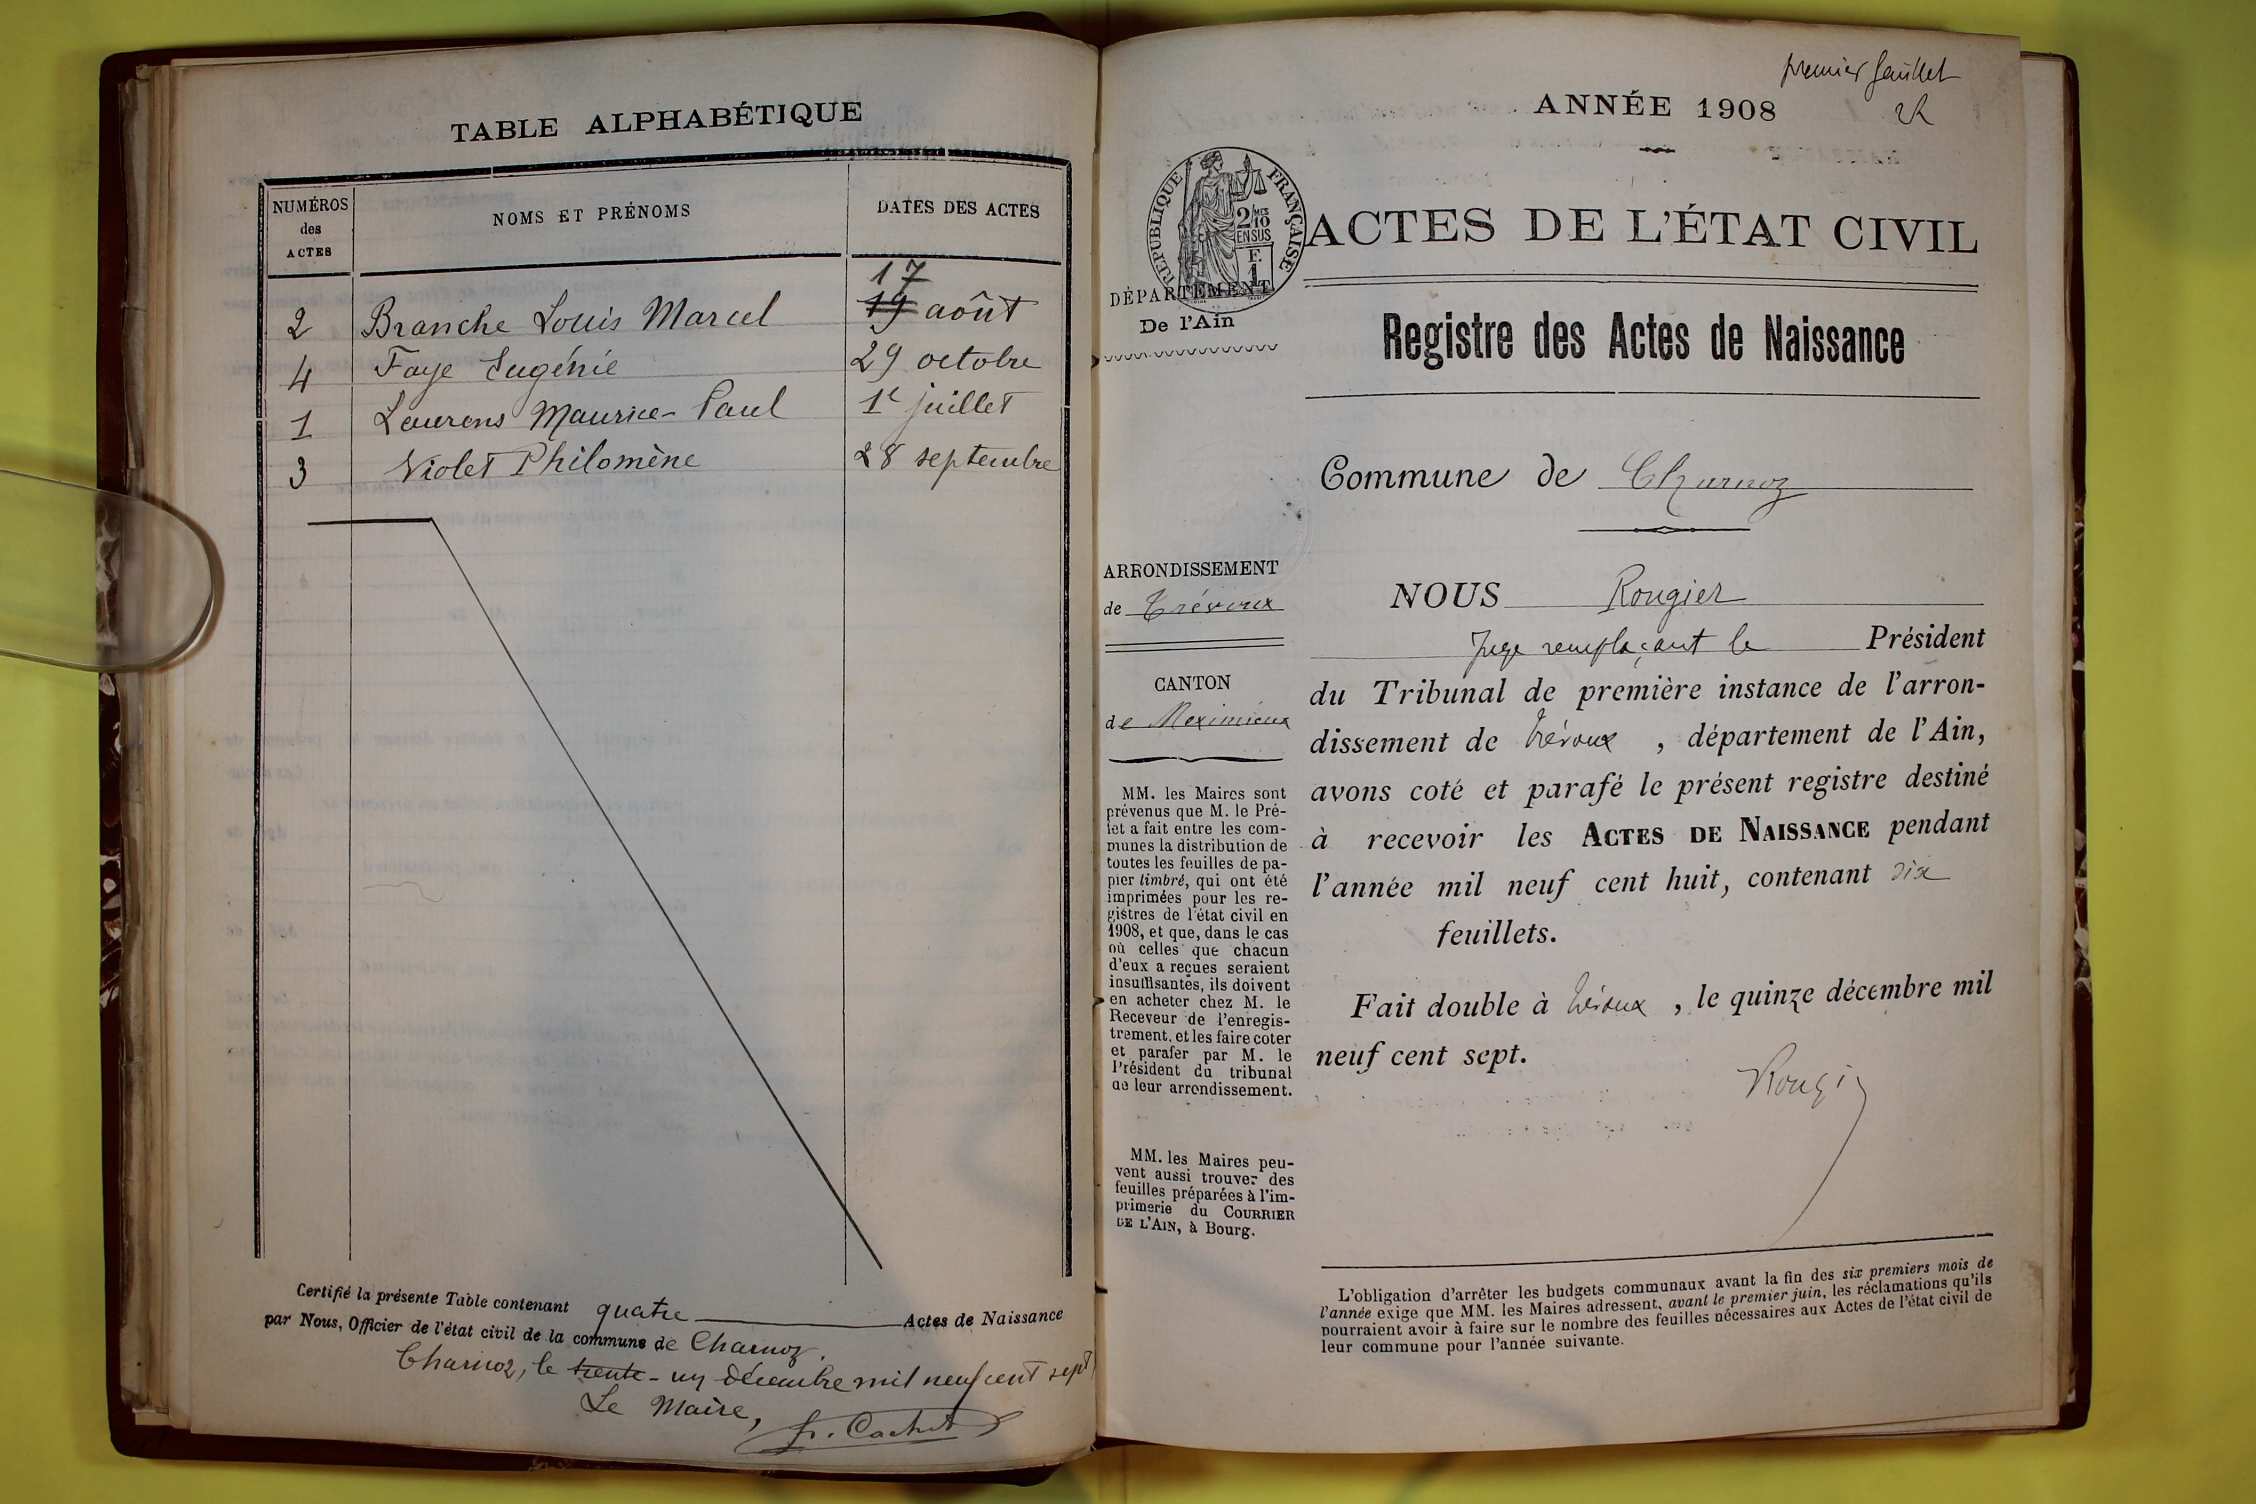 TABLE ALPHABÉTIQUE
NUMÉROS
des
ACTES
NOMS ET PRÉNOMS
DATES DES ACTES
17
2 Branche Louis Marcel 19 août
4 Faye Eugénie 29 octobre
1 Laurens Maurice-Paul 1e juillet
3 Violet Philomène 28 septembre
Certifié la présente Table contenant quatre Actes de Naissance
par Nous, Officier de l'état civil de la commune de Charnoz.
Charnoz, le trente-un décembre mil neuf cent sept
Le Maire,
premier feuillet
ANNÉE 1908
RÉPUBLIQUE FRANÇAISE
2 MES
10
EN SUS
F.
1
ACTES DE L'ÉTAT CIVIL
DÉPARTEMENT
De l'Ain
Registre des Actes de Naissance
Commune de Charnoz
ARRONDISSEMENT
de Trévoux
CANTON
de Meximieux
MM. les Maires sont
prévenus que M. le Pré-
fet a fait entre les com-
munes la distribution de
toutes les feuilles de pa-
pier timbré, qui ont été
imprimées pour les re-
gistres de l'état civil en
1908, et que, dans le cas
où celles que chacun
d'eux a reçues seraient
insuffisantes, ils doivent
en acheter chez M. le
Receveur de l'enregis-
trement, et les faire coter
et parafer par M. le
Président du tribunal
de leur arrondissement.
MM. les Maires peu-
vent aussi trouver des
feuilles préparées à l'im-
primerie du COURRIER
DE L'AIN, à Bourg.
NOUS Rougier
Juge remplaçant le Président
du Tribunal de première instance de l'arron-
dissement de Trévoux, département de l'Ain,
avons coté et parafé le présent registre destiné
à recevoir les ACTES DE NAISSANCE pendant
l'année mil neuf cent huit, contenant dix
feuillets.
Fait double à Trévoux, le quinze décembre mil
neuf cent sept.
Rougier
L'obligation d'arrêter les budgets communaux avant la fin des six premiers mois de
l'année exige que MM. les Maires adressent, avant le premier juin, les réclamations qu'ils
pourraient avoir à faire sur le nombre des feuilles nécessaires aux Actes de l'état civil de
leur commune pour l'année suivante.